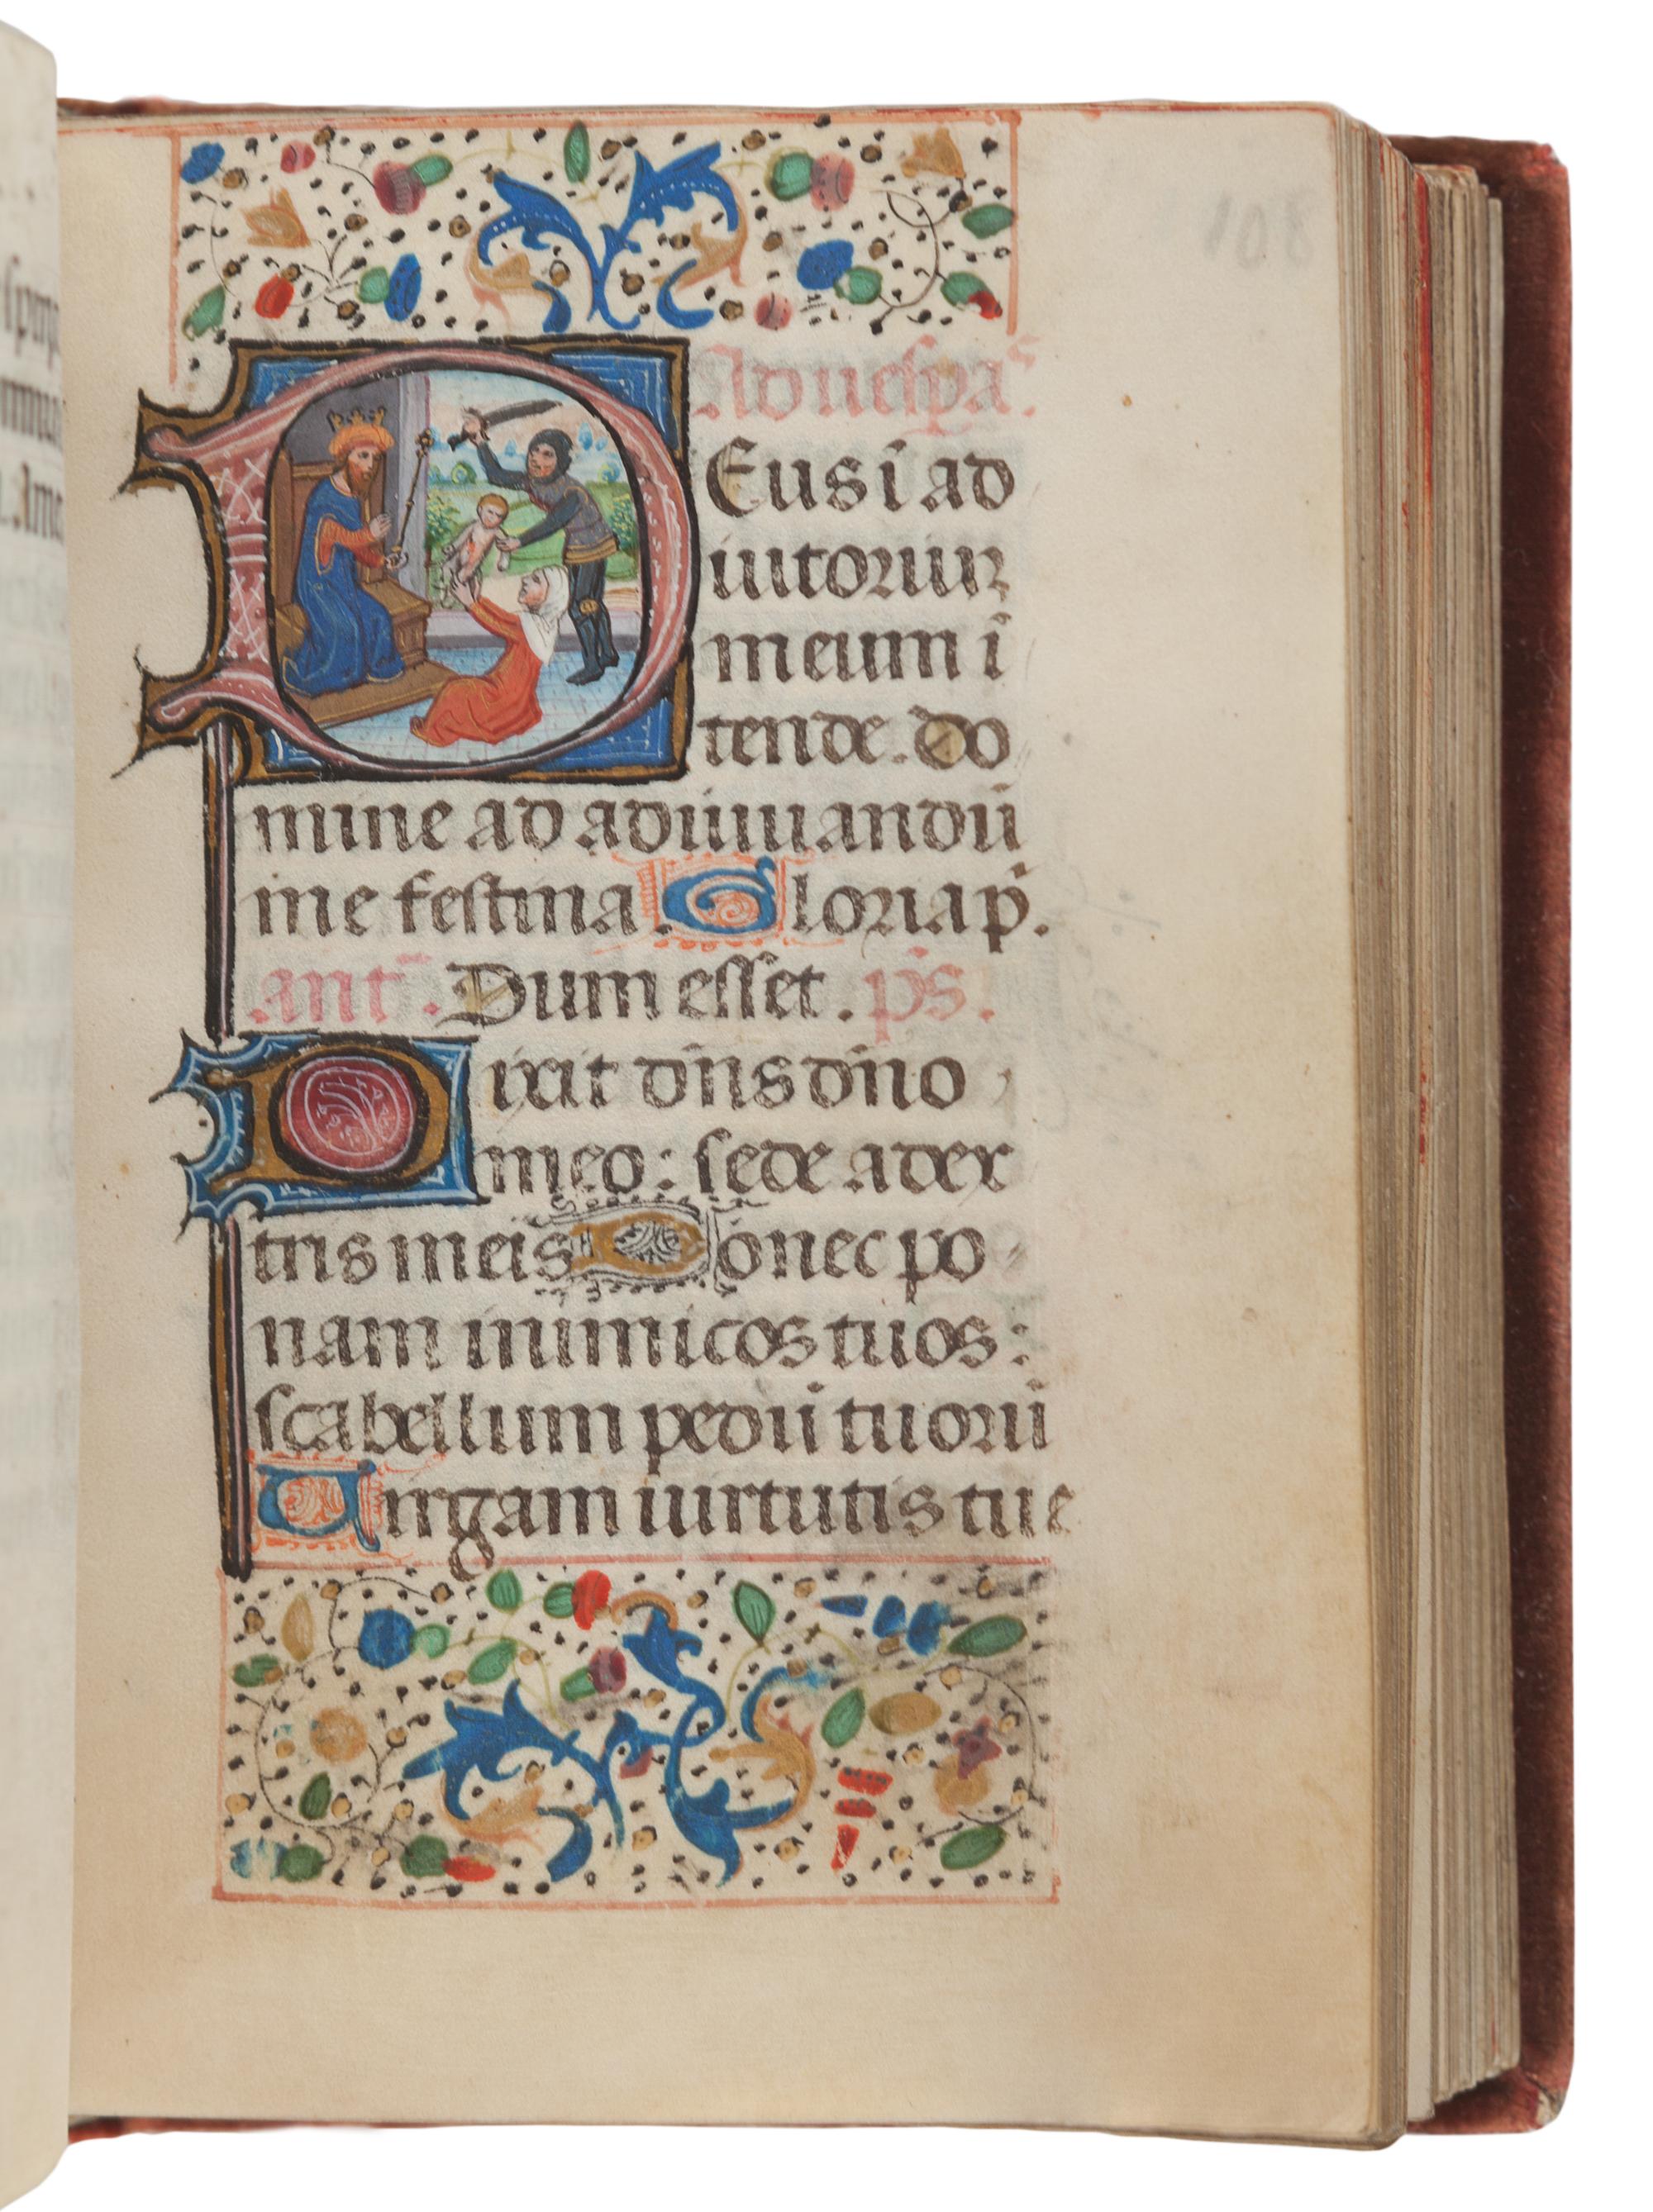 108
Ad uesp̄a.
DEus ī ad
iutorium
meum ī
tende. Do
mine ad adiuuandū
me festina. Gloria p̄.
ant̄. Dum esset. ps̄.
Dixit dn̄s dn̄o
meo: sede a dex
tris meis Donec po
nam inimicos tuos:
scabellum pedū tuorū
Uirgam uirtutis tue